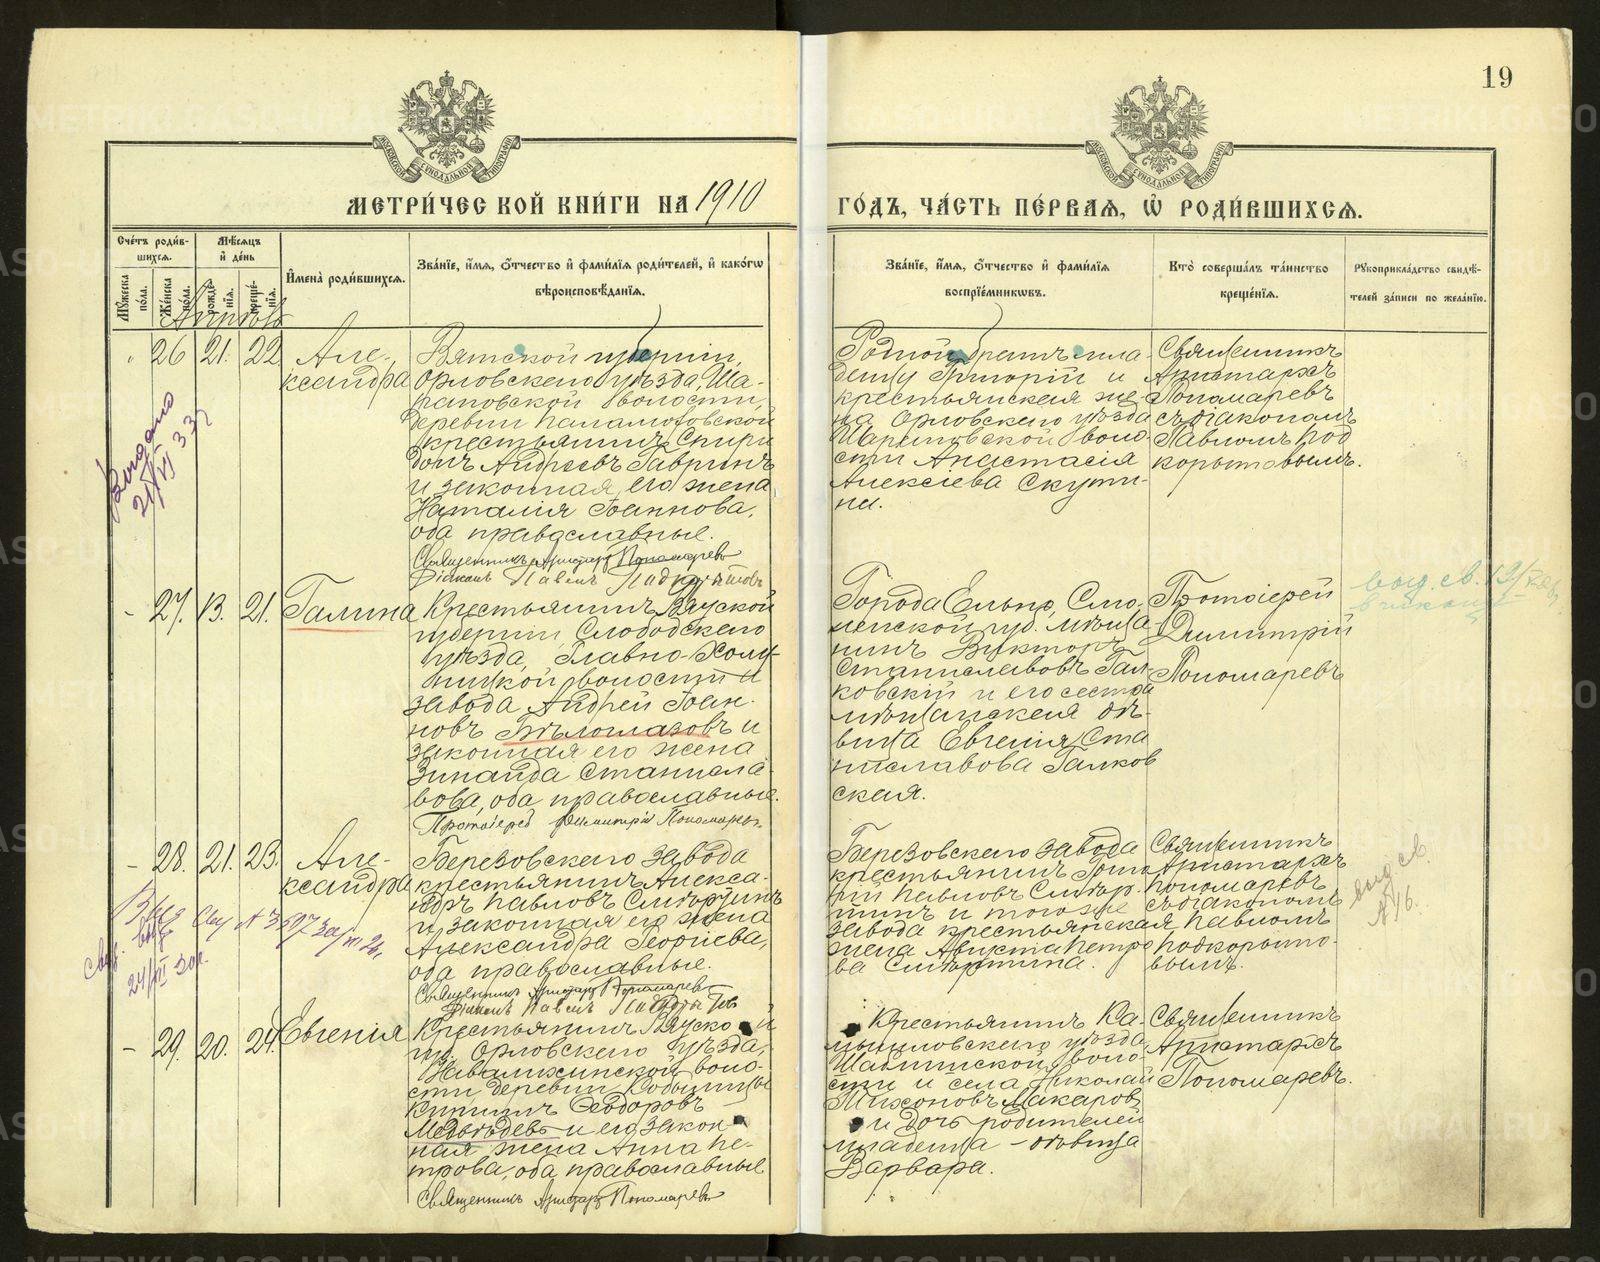 19
МЕТРИ́ЧЕСКОЙ КНИ́ГИ НА 1910
ГО́ДЪ, ЧА́СТЬ ПЕ́РВАЯ, Ѡ҆ РОДИ́ВШИХСЯ.
Сче́тъ роди́в-
шихся.
Мѣ́сяцъ
и҆ де́нь
Мꙋ́жеска по́ла.
Же́нска по́ла.
рожде́-
нїѧ.
креще́-
нїѧ.
И҆мена̀ роди́вшихсѧ.
Зва́нїе, и҆́мѧ, ѻ҆́тчество и҆ фами́лїѧ роди́телей, и҆ како́гѡ
вѣроисповѣ́данїѧ.
Зва́нїе, и҆́мѧ, ѻ҆́тчество и҆ фами́лїѧ
воспрїе́мникѡвъ.
Кто̀ соверша́лъ та́инство
креще́нїѧ.
Рꙋкоприкла́дство свидѣ́-
телей за́писи по жела́нїю.
26 21. 22
Але-
ксандра
Вятской губерніи,
Орловскаго уѣзда, Ша-
рановской волости,
деревни
крестьянинъ Спири
донъ Андреевъ Гавринъ
и законная его жена
Наталія Іоаннова,
оба православные.
Священникъ Аристархъ Пономаревъ
Діаконъ Павелъ Подкорытовъ
Родной братъ мла-
денцу Григорій и
крестьянская же-
на Орловскаго уѣзда
воло
сти Анастасія
Алексіева Скути-
на.
Священникъ
Аристархъ
Пономаревъ
съ діакономъ
Павломъ Под
корытовымъ.
27. 13. 21.
Галина
Крестьянинъ Вятской
губерніи Слободскаго
уѣзда, Главно-Холу-
ницкой волости и
завода Андрей Іоан-
новъ Бѣлоглазовъ и
законная его жена
Зинаида Станисла-
вова, оба православные.
Протоіерей Димитрій Пономаревъ.
Города Ельни, Смо-
ленской губ. мѣща-
нинъ Викторъ
Станиславовъ Гал-
ковскій и его сестра
мѣщанская дѣ-
вица Евгенія Ста
ниславова Галков
ская.
Протоіерей
Димитрій
Пономаревъ
28. 21. 23.
Але-
ксандра
Березовскаго завода
крестьянинъ Алекса-
ндръ Павловъ
и законная его жена
Александра Георгіева,
оба православные.
Священникъ Аристархъ Пономаревъ
Діаконъ Павелъ Подкорытовъ
Березовскаго завода
крестьянинъ
Павловъ
и того же
завода крестьянская
жена Августа Петро
ва
Священникъ
Аристархъ
Пономаревъ
съ діакономъ
Павломъ
Подкорыто-
вымъ.
29. 20. 24.
Евгенія
Крестьянинъ Вятской
губ. Орловскаго уѣзда,
воло-
сти деревни
Ѳеодоровъ
Медвѣдевъ и его закон-
ная жена Анна Пе-
трова, оба православные
Священникъ Аристархъ Пономаревъ
Крестьянинъ Ка-
мышловскаго уѣзда,
воло-
сти и села Николай
Тихоновъ Макаровъ
и дочь родителей
младенца - дѣвица
Варвара.
Священникъ
Аристархъ
Пономаревъ.